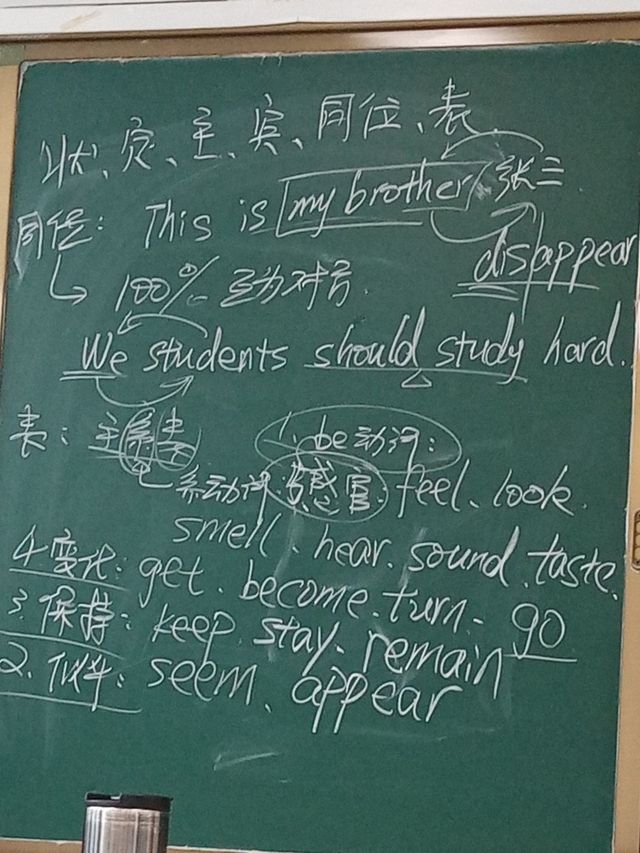 状、定、主、宾、同位、表
同位: This is my brother 张三.
disappear
↳ 100% 互为对方.
We students should study hard.
表: 主系表
1. be动词:
系动词 感官: feel、look.
smell、hear. sound. taste.
4. 变化: get. become. turn. go
3. 保持: keep. stay. remain
2. 似乎: seem、appear